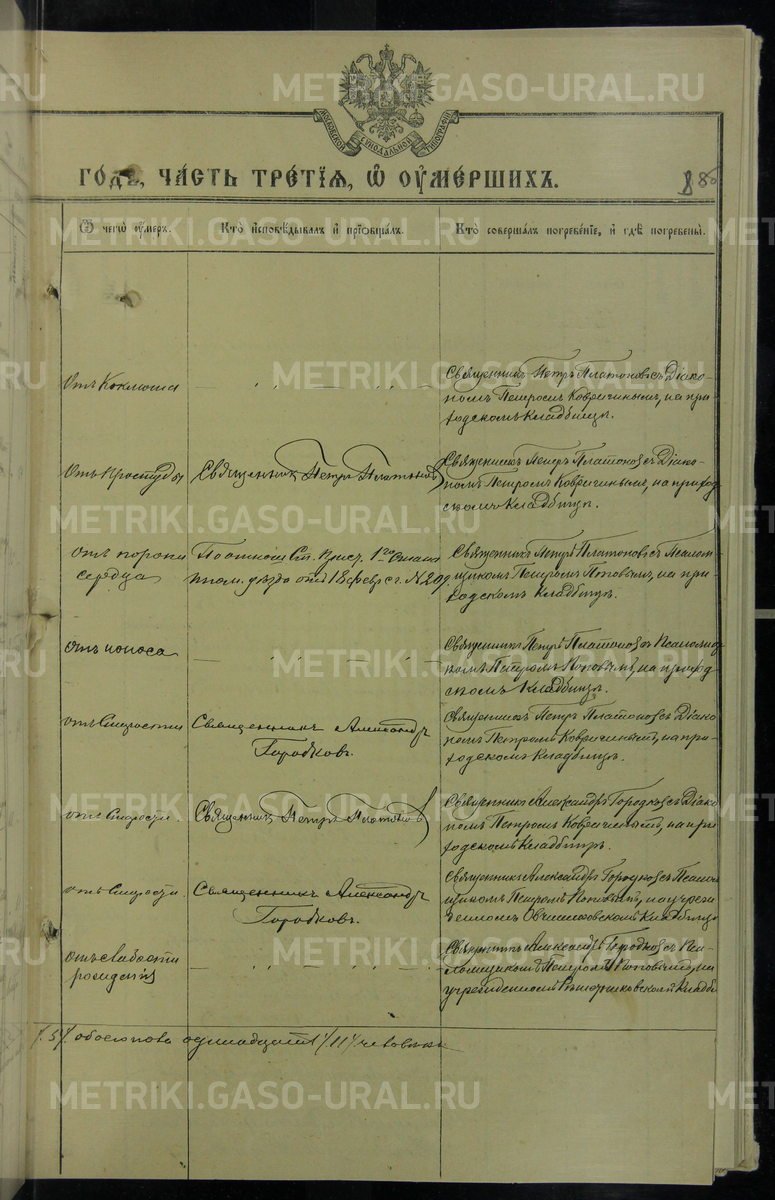 МОСКОВСКОЙ СѴНОДАЛЬНОЙ ТИПОГРАФІИ
ГОДЪ, ЧАСТЬ ТРЕТІЯ, Ѡ ОУМЕРШИХЪ.
Ѿ чегѡ оумеръ.
Кто исповѣдывалъ и приѡбщалъ.
Кто совершалъ погребеніе, и гдѣ погребены.
Отъ Коклюша
Священникъ Петръ Платоновъ съ Діако-
номъ Петромъ Ковригинымъ, на при-
ходскомъ Кладбищѣ.
Отъ Простуды
Священникъ Петръ Платоновъ
Священникъ Петръ Платоновъ съ Діако-
номъ Петромъ Ковригинымъ, на приход-
скомъ Кладбищѣ.
отъ порока
сердца
По отнош. Прист. 1го Стана
уѣзда отъ 18 февр. с. г. №
Священникъ Петръ Платоновъ съ Псалом-
щикомъ Петромъ Поповымъ, на при-
ходскомъ Кладбищѣ.
отъ поноса
Священникъ Петръ Платоновъ съ Псаломщи-
комъ Петромъ Поповымъ, на приход-
скомъ Кладбищѣ.
отъ Старости
Священникъ Александръ
Городковъ.
Священникъ Петръ Платоновъ съ Діако-
номъ Петромъ Ковригинымъ, на при-
ходскомъ Кладбищѣ.
отъ Старости.
Священникъ Петръ Платоновъ
Священникъ Александръ Городковъ съ Діако-
номъ Петромъ Ковригинымъ, на при-
ходскомъ Кладбищѣ.
отъ Старости.
Священникъ Александръ
Городковъ.
Священникъ Александръ Городковъ съ Псалом-
щикомъ Петромъ Поповымъ, на учреж-
денномъ Кладбищѣ
отъ слабости
рожденія
Священникъ Александръ Городковъ съ Пса-
ломщикомъ Петромъ Поповымъ, на
учрежденномъ Кладби
обоего пола одинадцать /11/ человѣкъ
METRIKI.GASO-URAL.RU